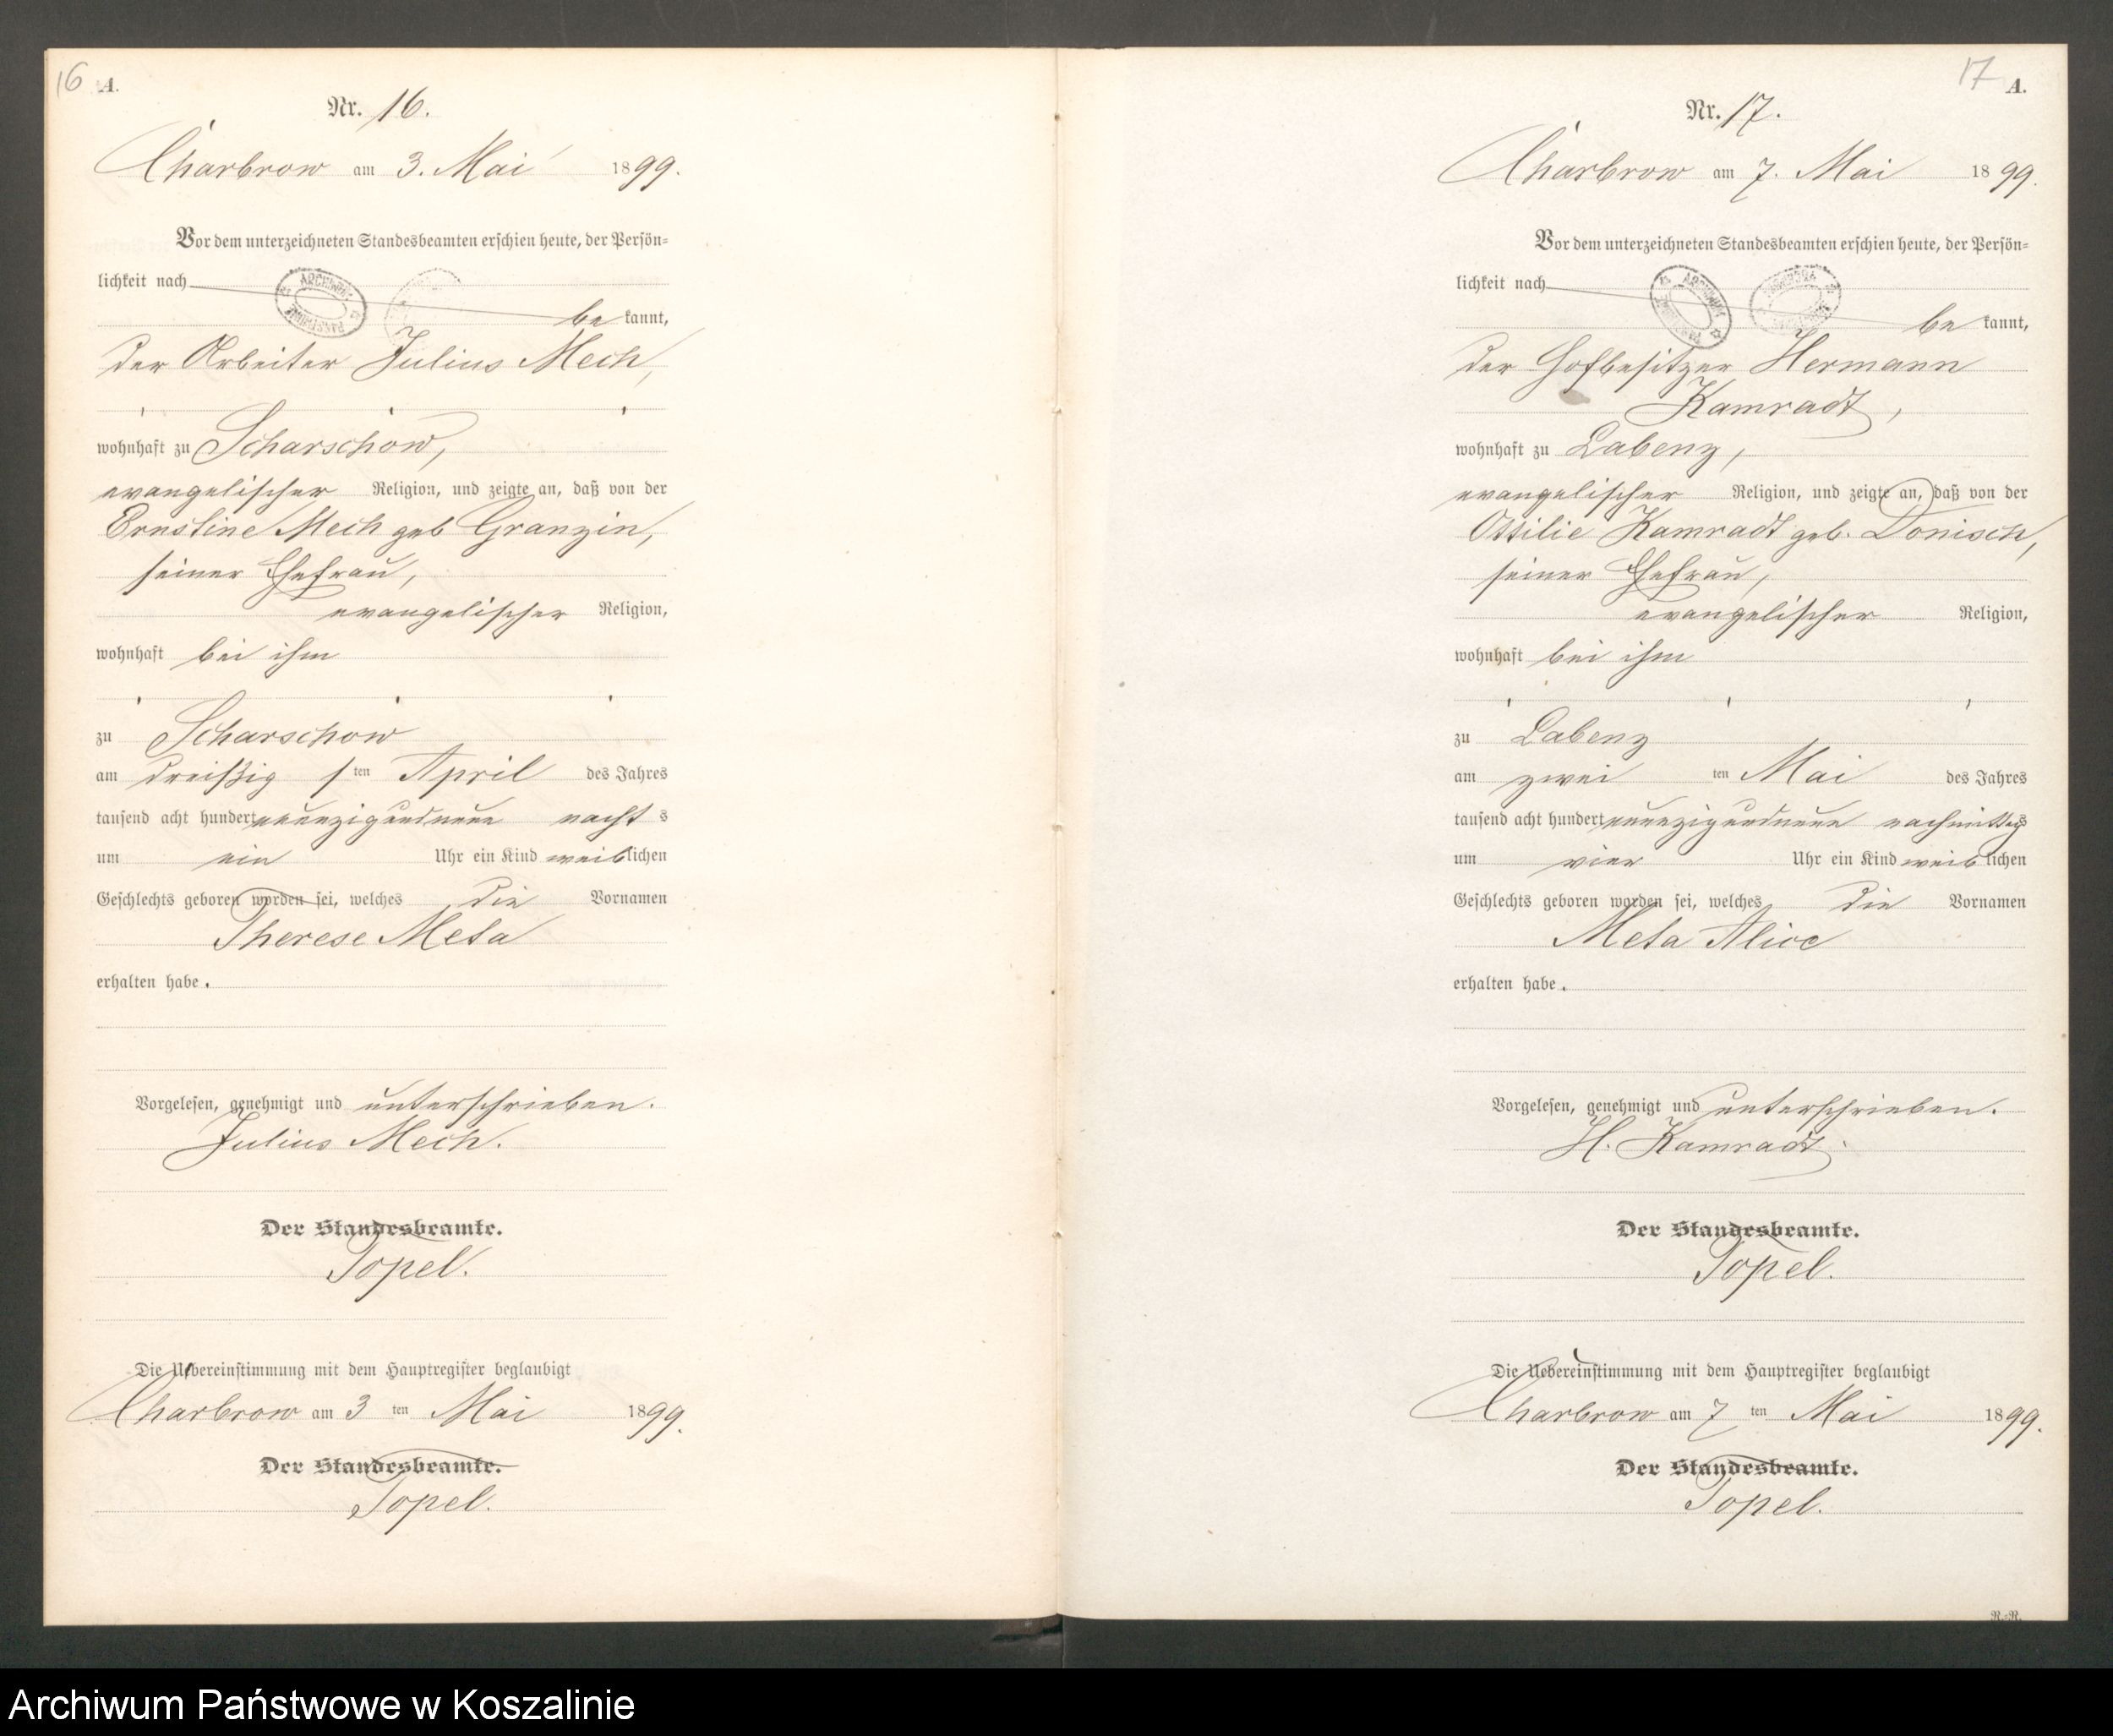 16 A.
Nr. 16.
Charbrow am 3. Mai 1899.
Vor dem unterzeichneten Standesbeamten erschien heute, der Persön=
lichkeit nach
be kannt,
der Arbeiter Julius Mech,
wohnhaft zu Scharschow,
evangelischer Religion, und zeigte an, daß von der
Ernstine Mech geb Granzin,
seiner Ehefrau,
evangelischer Religion,
wohnhaft bei ihm
zu Scharschow
am dreißig sten April des Jahres
tausend acht hundert neunzigundneun nacht s
um ein Uhr ein Kind weiblichen
Geschlechts geboren worden sei, welches die Vornamen
Therese Meta
erhalten habe.
Vorgelesen, genehmigt und unterschrieben.
Julius Mech.
Der Standesbeamte.
Topel.
Die Uebereinstimmung mit dem Hauptregister beglaubigt
Charbrow am 3 ten Mai 1899.
Der Standesbeamte.
Topel.
17 A.
Nr. 17.
Charbrow am 7. Mai 1899.
Vor dem unterzeichneten Standesbeamten erschien heute, der Persön=
lichkeit nach
be kannt,
der Hofbesitzer Hermann
Kamradt,
wohnhaft zu Labenz,
evangelischer Religion, und zeigte an, daß von der
Ottilie Kamradt geb. Donisch,
seiner Ehefrau,
evangelischer Religion,
wohnhaft bei ihm
zu Labenz
am zwei ten Mai des Jahres
tausend acht hundert neunzigundneun nachmittags
um vier Uhr ein Kind weiblichen
Geschlechts geboren worden sei, welches die Vornamen
Meta Alice
erhalten habe.
Vorgelesen, genehmigt und unterschrieben.
H. Kamradt.
Der Standesbeamte.
Topel.
Die Uebereinstimmung mit dem Hauptregister beglaubigt
Charbrow am 7 ten Mai 1899.
Der Standesbeamte.
Topel.
R.=R.
Archiwum Państwowe w Koszalinie